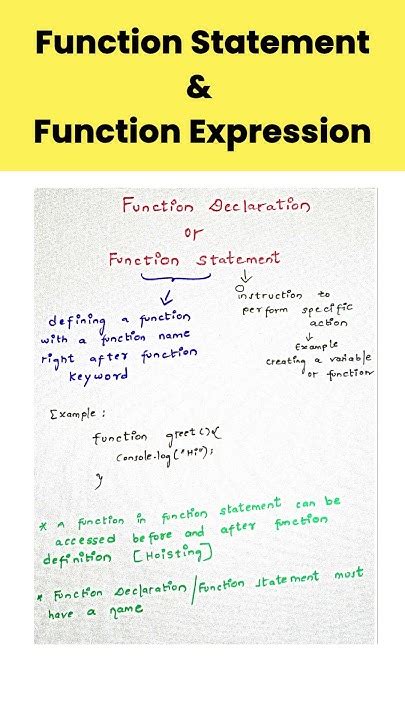 Function Statement
&
Function Expression
Function Declaration
or
Function Statement
defining a function
with a function name
right after function
keyword
instruction to
perform specific
action
Example
creating a variable
or function
Example :
function greet(){
console.log("Hi");
}
* A function in function statement can be
accessed before and after function
definition [Hoisting]
* Function Declaration/Function statement must
have a name